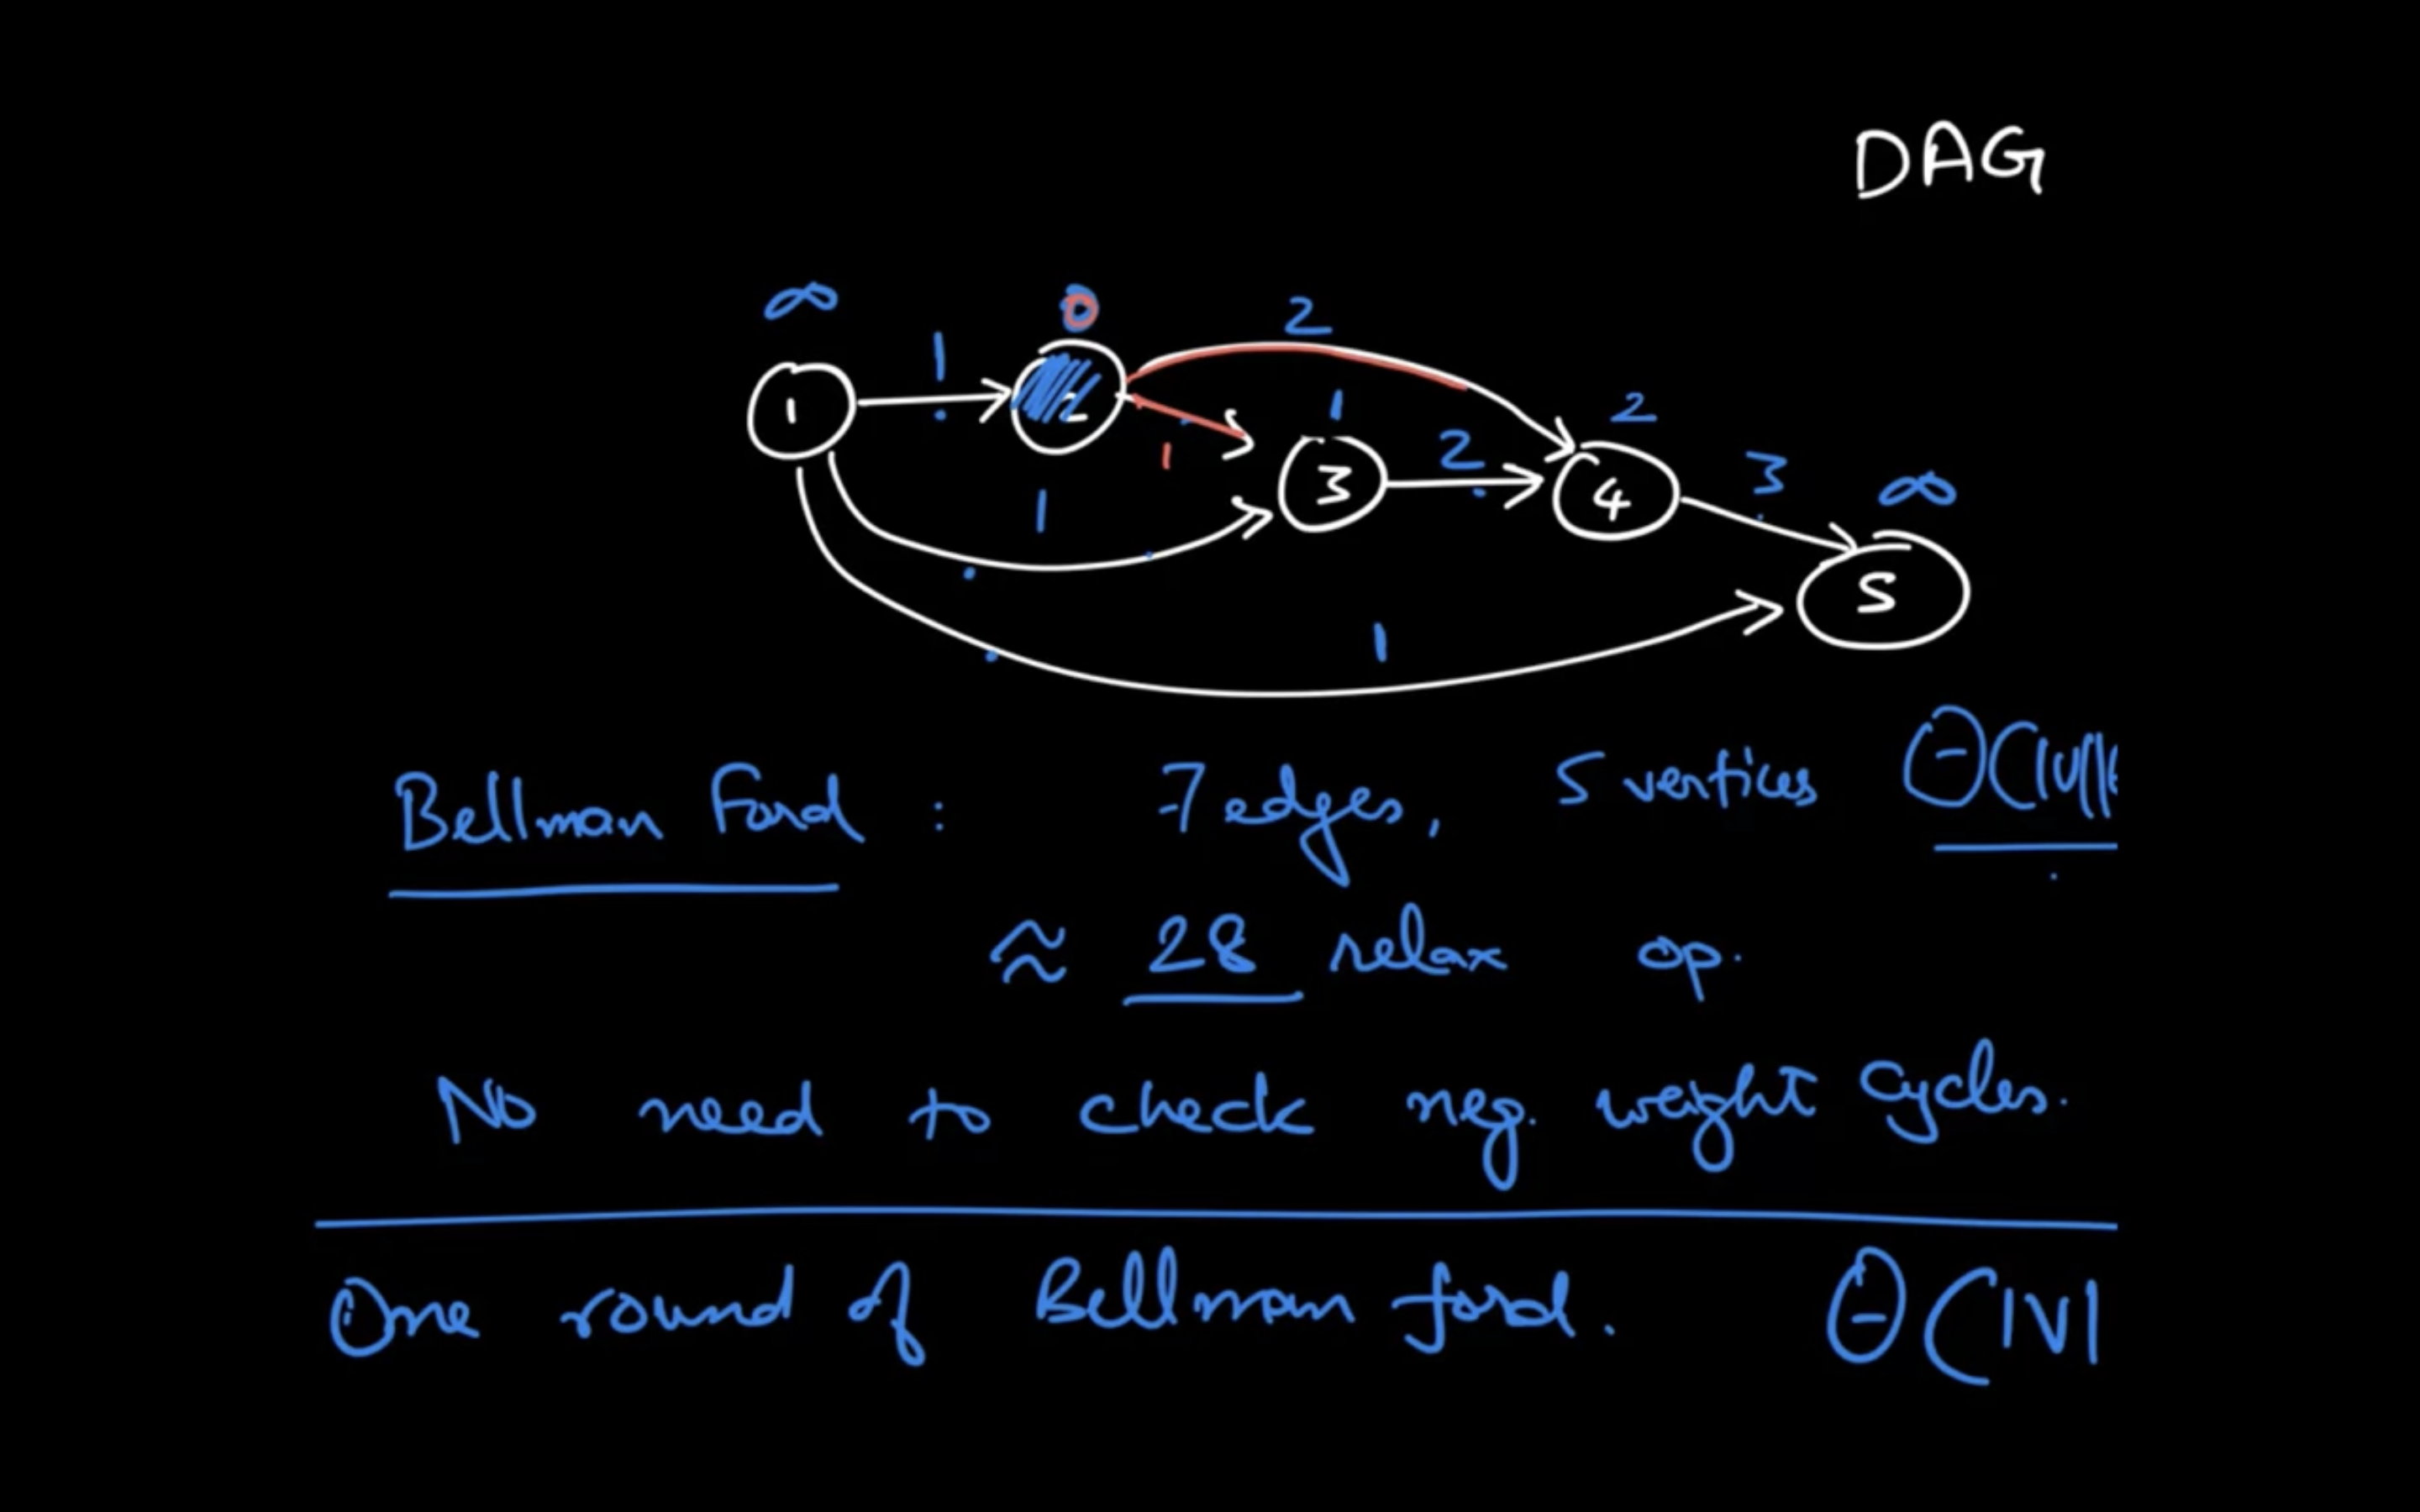 DAG
∞ 0 2
1
1 2 1 2
1 2 3 ∞
1 3 4
5
1
Bellman Ford : 7 edges, 5 vertices Θ(|V||
≈ 28 relax op.
No need to check neg. weight cycles.
One round of Bellman ford. Θ(|V|